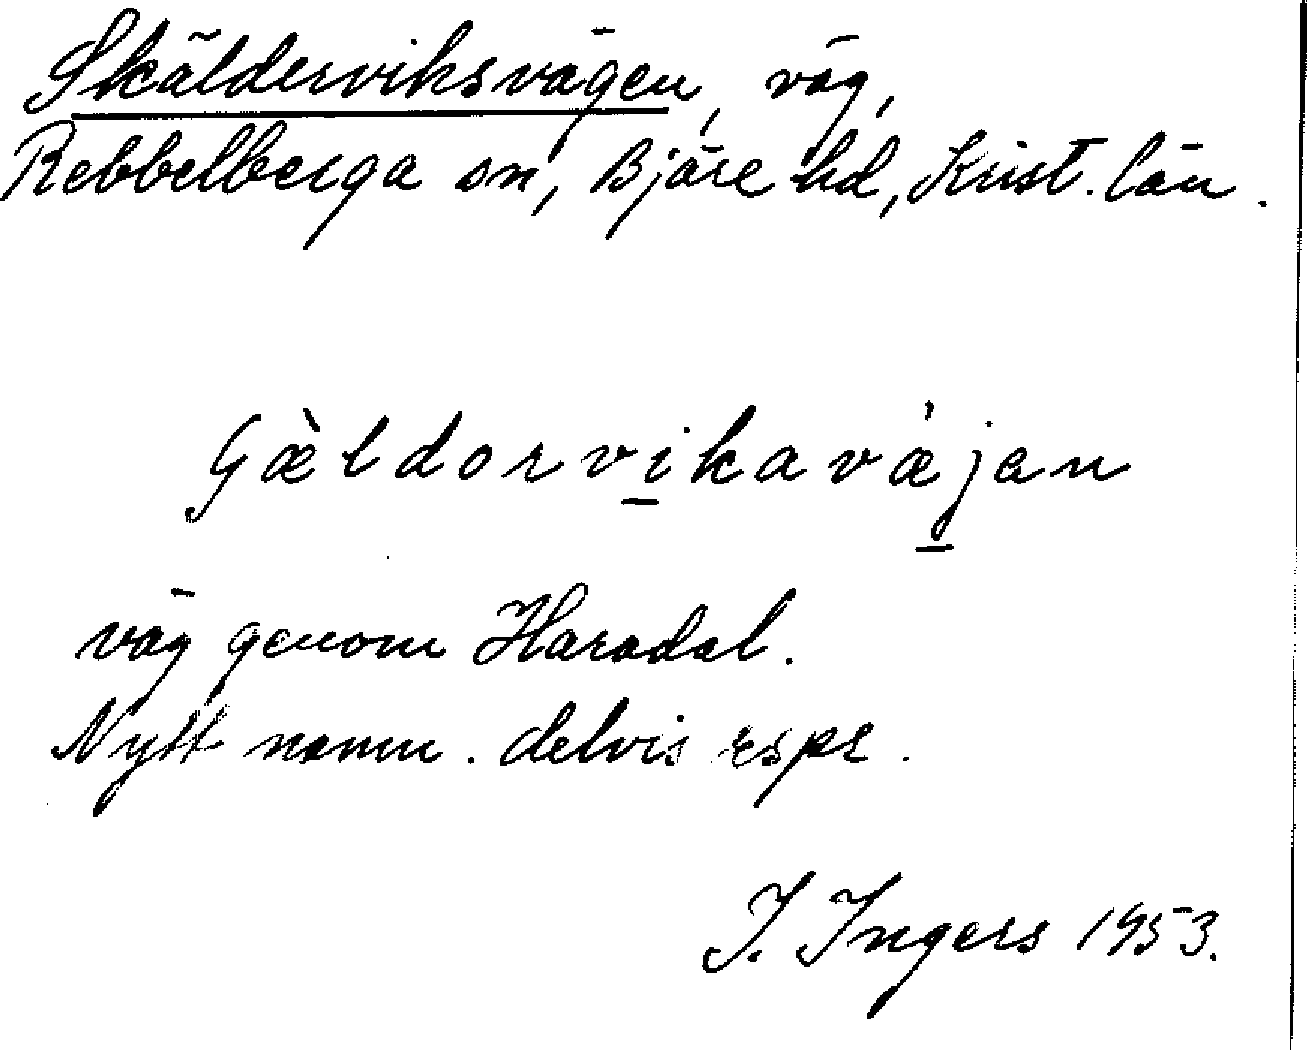 Skäldersviksvägen, väg,
Rebbelberga sn, Bjäre hd, Krist. län.
Gæ̀ldorvikavæ̀jan
väg genom Haradal.
Nytt namn. delvis espr.
I. Ingers 1953.